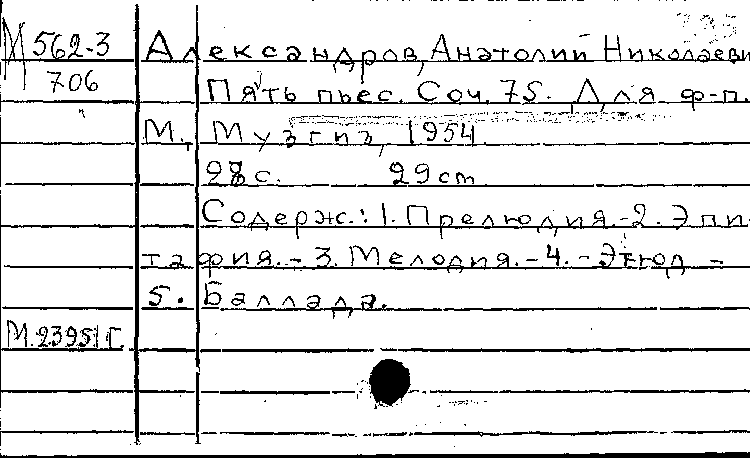 М 562-3
706
Александров, Анатолий Николаеви
Пять пьес. Соч. 75. Для ф-п.
М., Музгиз, 1954.
28 с. 29 cm
Содерж.: 1. Прелюдия.-2. Эпи-
тафия.-3. Мелодия.-4.-Этюд -
5. Баллада.
М.23951 Г.